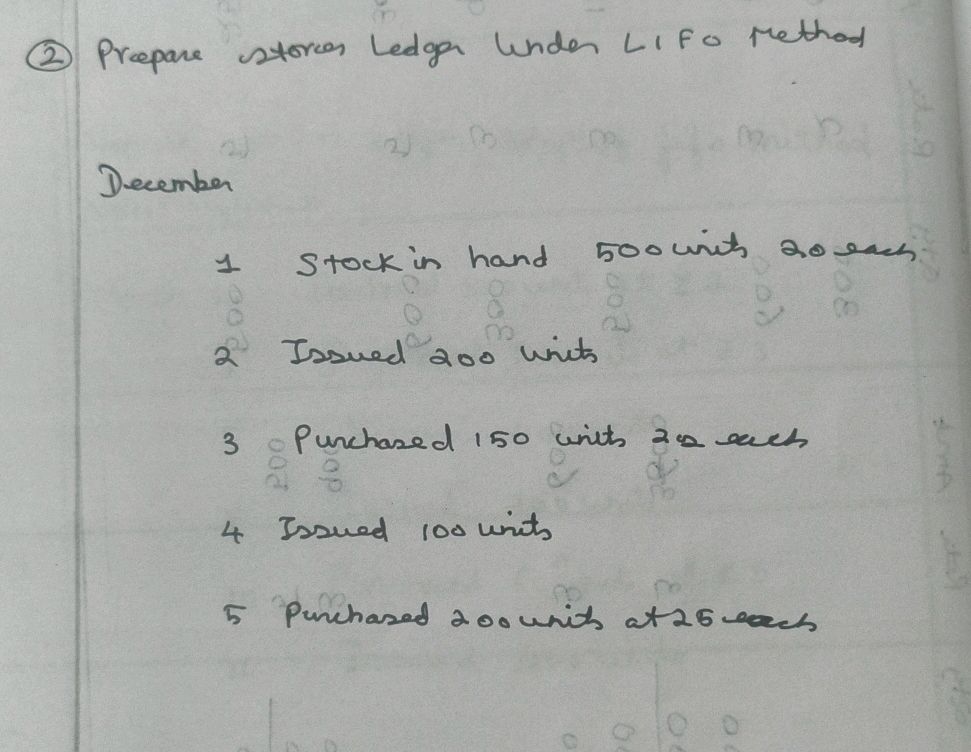 ② Prepare stores Ledger Under LIFO Method
December
1 Stock in hand 500 units 20 each
2 Issued 200 units
3 Purchased 150 units each
4 Issued 100 units
5 Purchased 200 units at 25 each